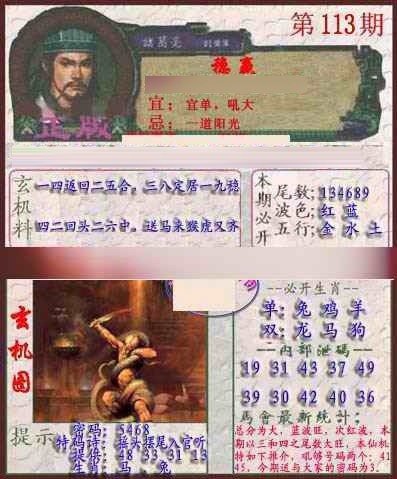 第113期
諸葛亮
德赢
宜：宜单，吼大
忌：一道阳光
正版
玄机料
一四返回二五合。三八定居一九稳
四二回头二六中。送马来猴虎又齐
本期必开
尾数：134689
波色：红 蓝
五行：金 水 土
玄机图
必开生肖
单：兔 鸡 羊
双：龙 马 狗
内部泄码
19 31 43 37 49
39 30 42 40 36
馬會最新統计：
总分为大，蓝波旺，次红波，本
期以三和四之尾数大旺，本仙机
特如下推介，吼够号码两个：41
45，今期送与大家的密码为3．
提示
密码：5468
特码诗：摇头摆尾入官听
提得：48 33 31 13
生肖：马、兔